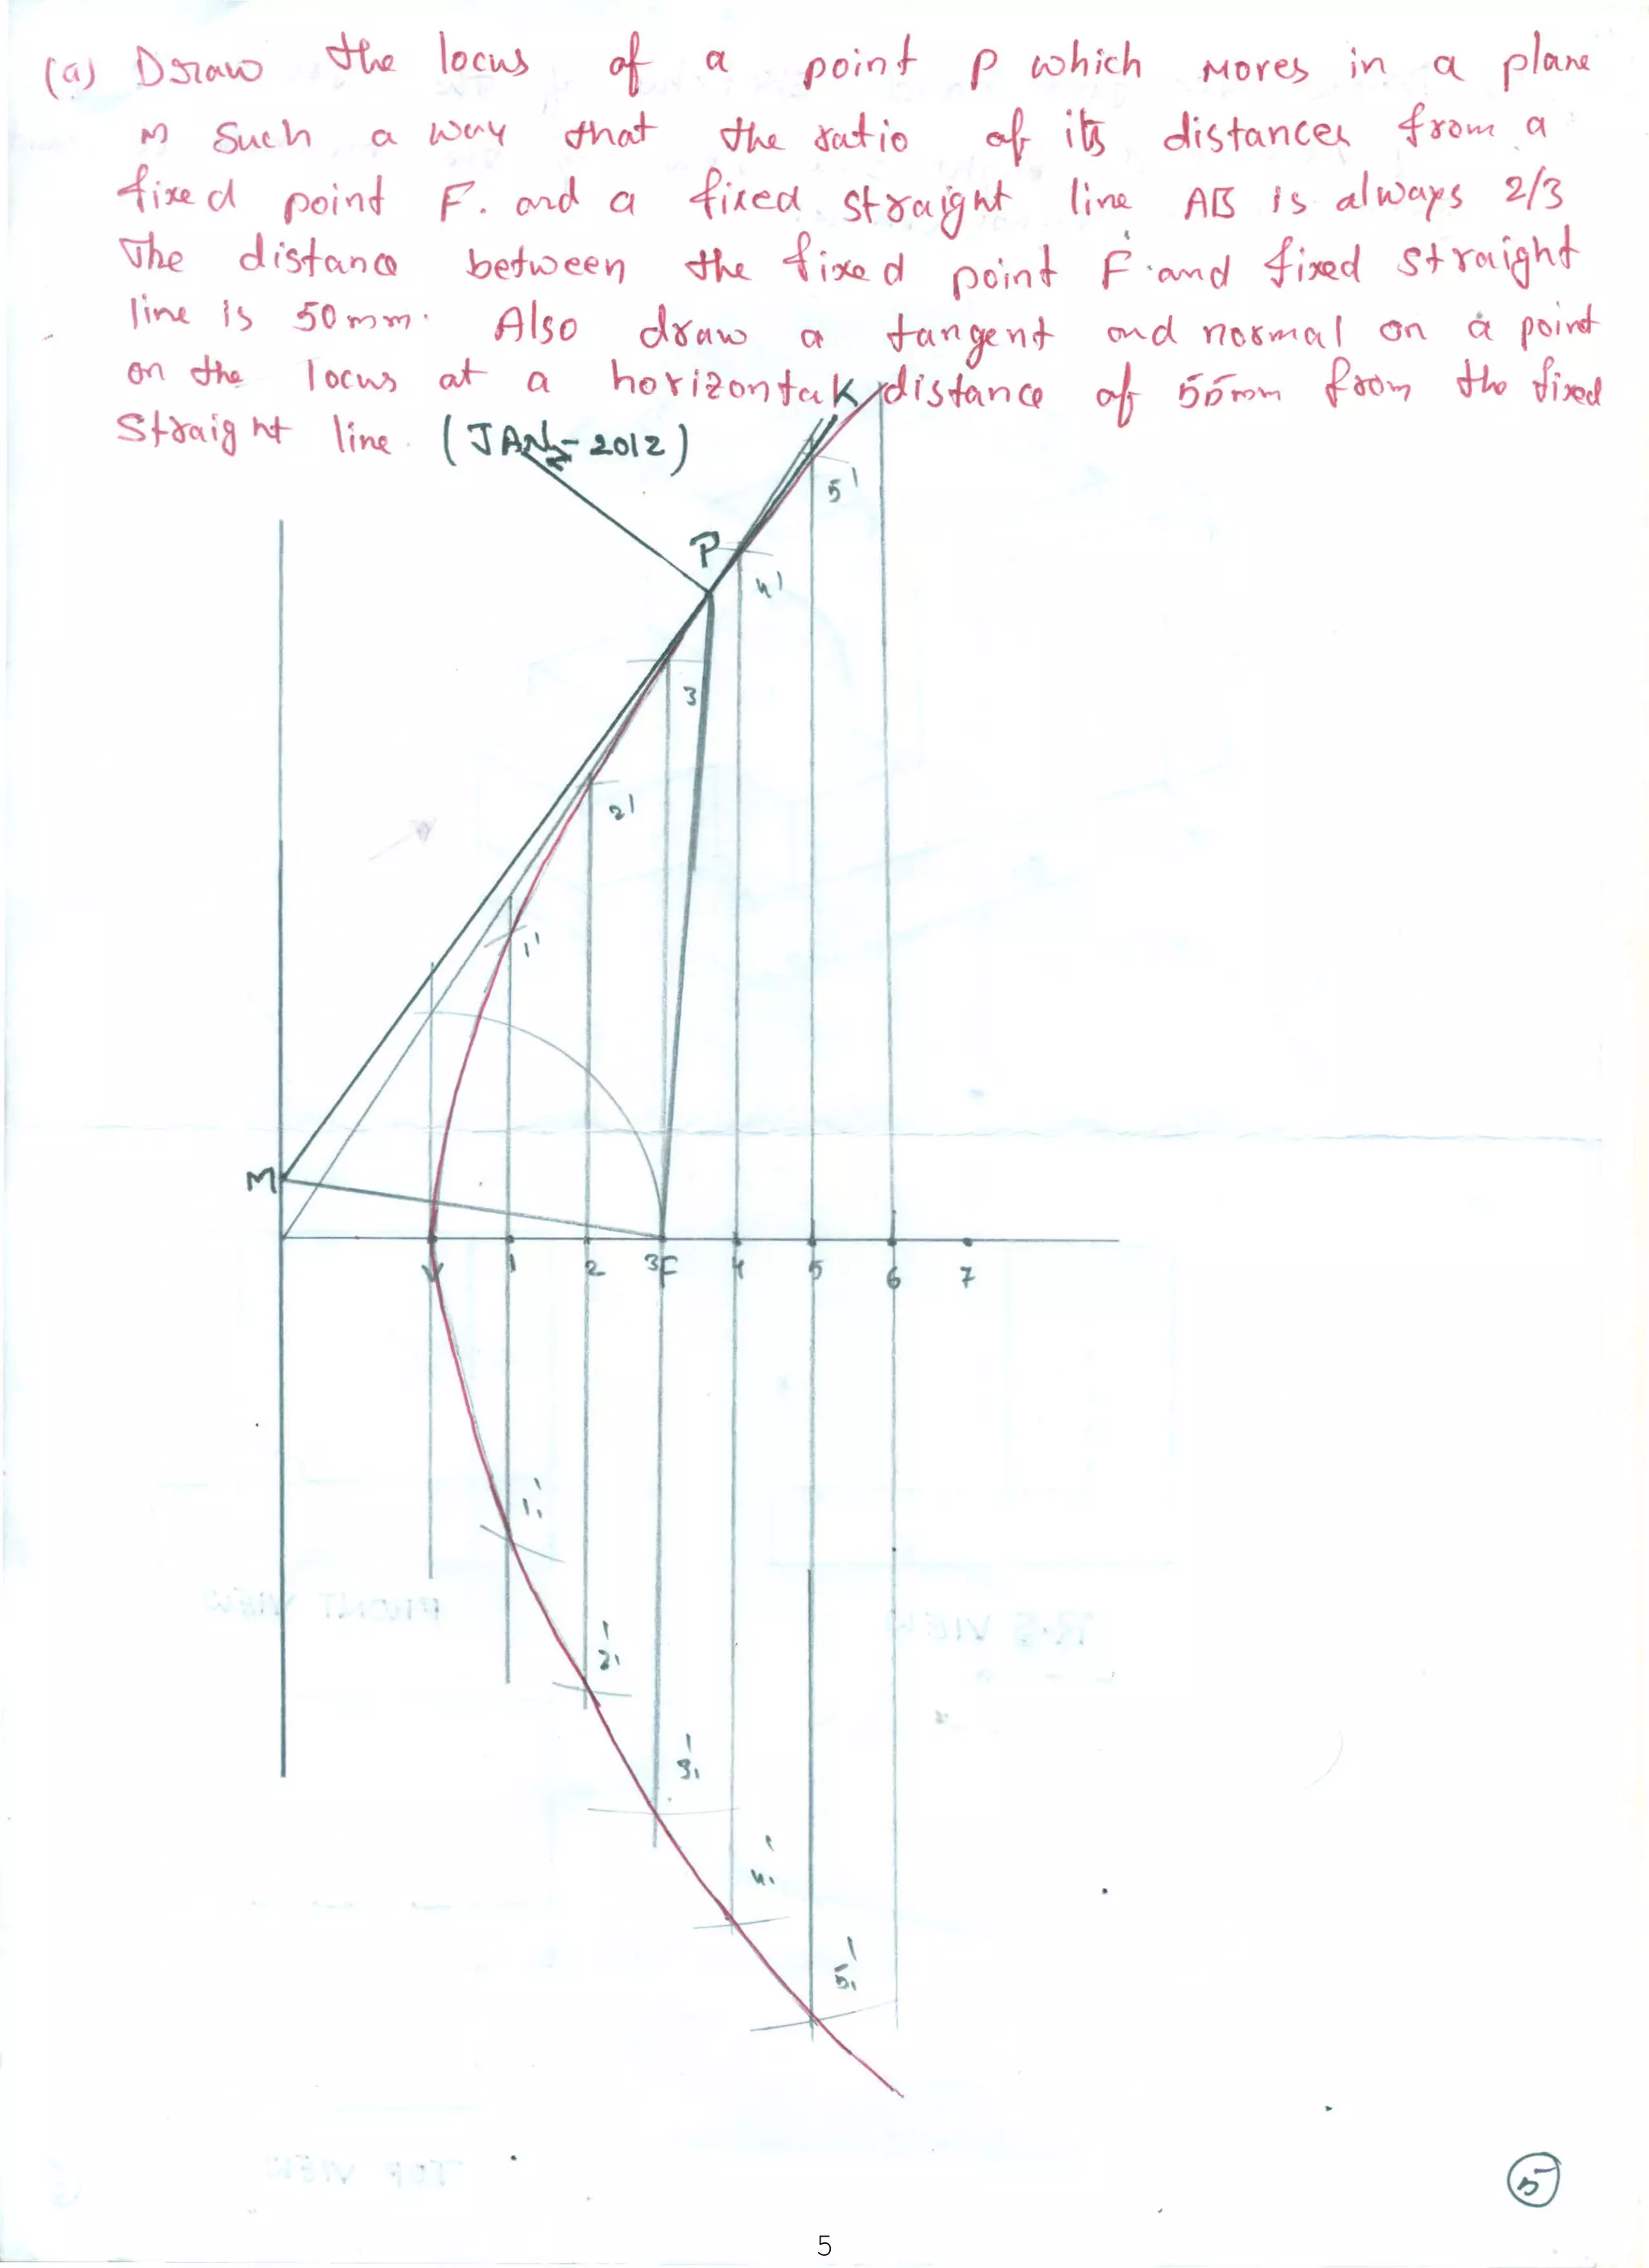 (a) Draw the locus of a point P which moves in a plane
in such a way that the ratio of its distances from a
fixed point F. and a fixed straight line AB is always 2/3
The distance between the fixed point F and fixed straight
line is 50mm. Also draw a tangent and normal on a point
on the locus at a horizontal distance of 55mm from the fixed
straight line. (JAN-2012)
K
5'
P
4'
3
2'
1'
M
V 1 2 3F 4 5 6 7
1₁'
2₁'
3₁'
4₁'
5₁'
FRONT VIEW
R.S VIEW
TOP VIEW
5
5